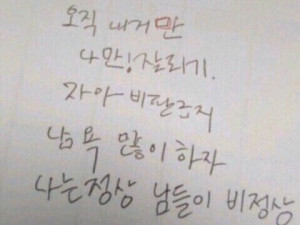 오직 내거만
나만! 잘라기.
자아 비판금지
남 욕 많이 하자
나는 정상 남들이 비정상